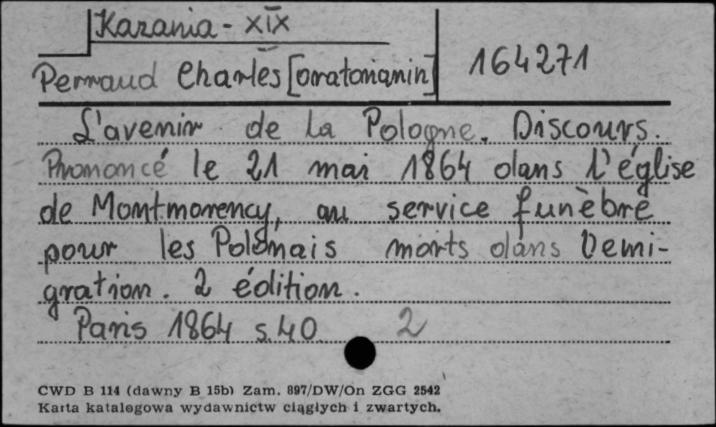 Kazania - XIX
164271
Perraud Charles [oratorianin]
L'avenir de la Pologne. Discours.
Prononcé le 21 mai 1864 dans l'église
de Montmorency, au service funèbre
pour les Polonais morts dans l'emi-
gration. 2 édition.
Paris 1864 s. 40 2
CWD B 114 (dawny B 15b) Zam. 897/DW/On ZGG 2542
Karta katalogowa wydawnictw ciągłych i zwartych.